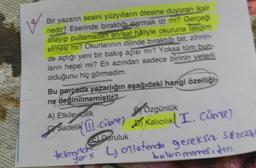 Bir yazarın sesini yüzyılların ötesine duyuran iksir
nedir? Eserinde bıraktığı parmak izi mi? Gerçeği
allayıp pullamadan en saf hâliyle okuruna takdim
etmesi mi? Okurlarının dilinde bıraktığı tat, zihnin-
de açtığı yeni bir bakış açısı mı? Yoksa tüm bun-
ların hepsi mi? En azından sadece birinin yeterli
olduğunu hiç görmedim.
Bu parçada yazarlığın aşağıdaki hangi özelliği-
ne değinilmemiştir?
A) Etkileyicilik B) Özgünlük
C) Sadelik (II. cümle) D) Kalıcılık (I. cümle)
E) Duruluk
anlatımda gereksiz sözcük
bulunmamasıdır